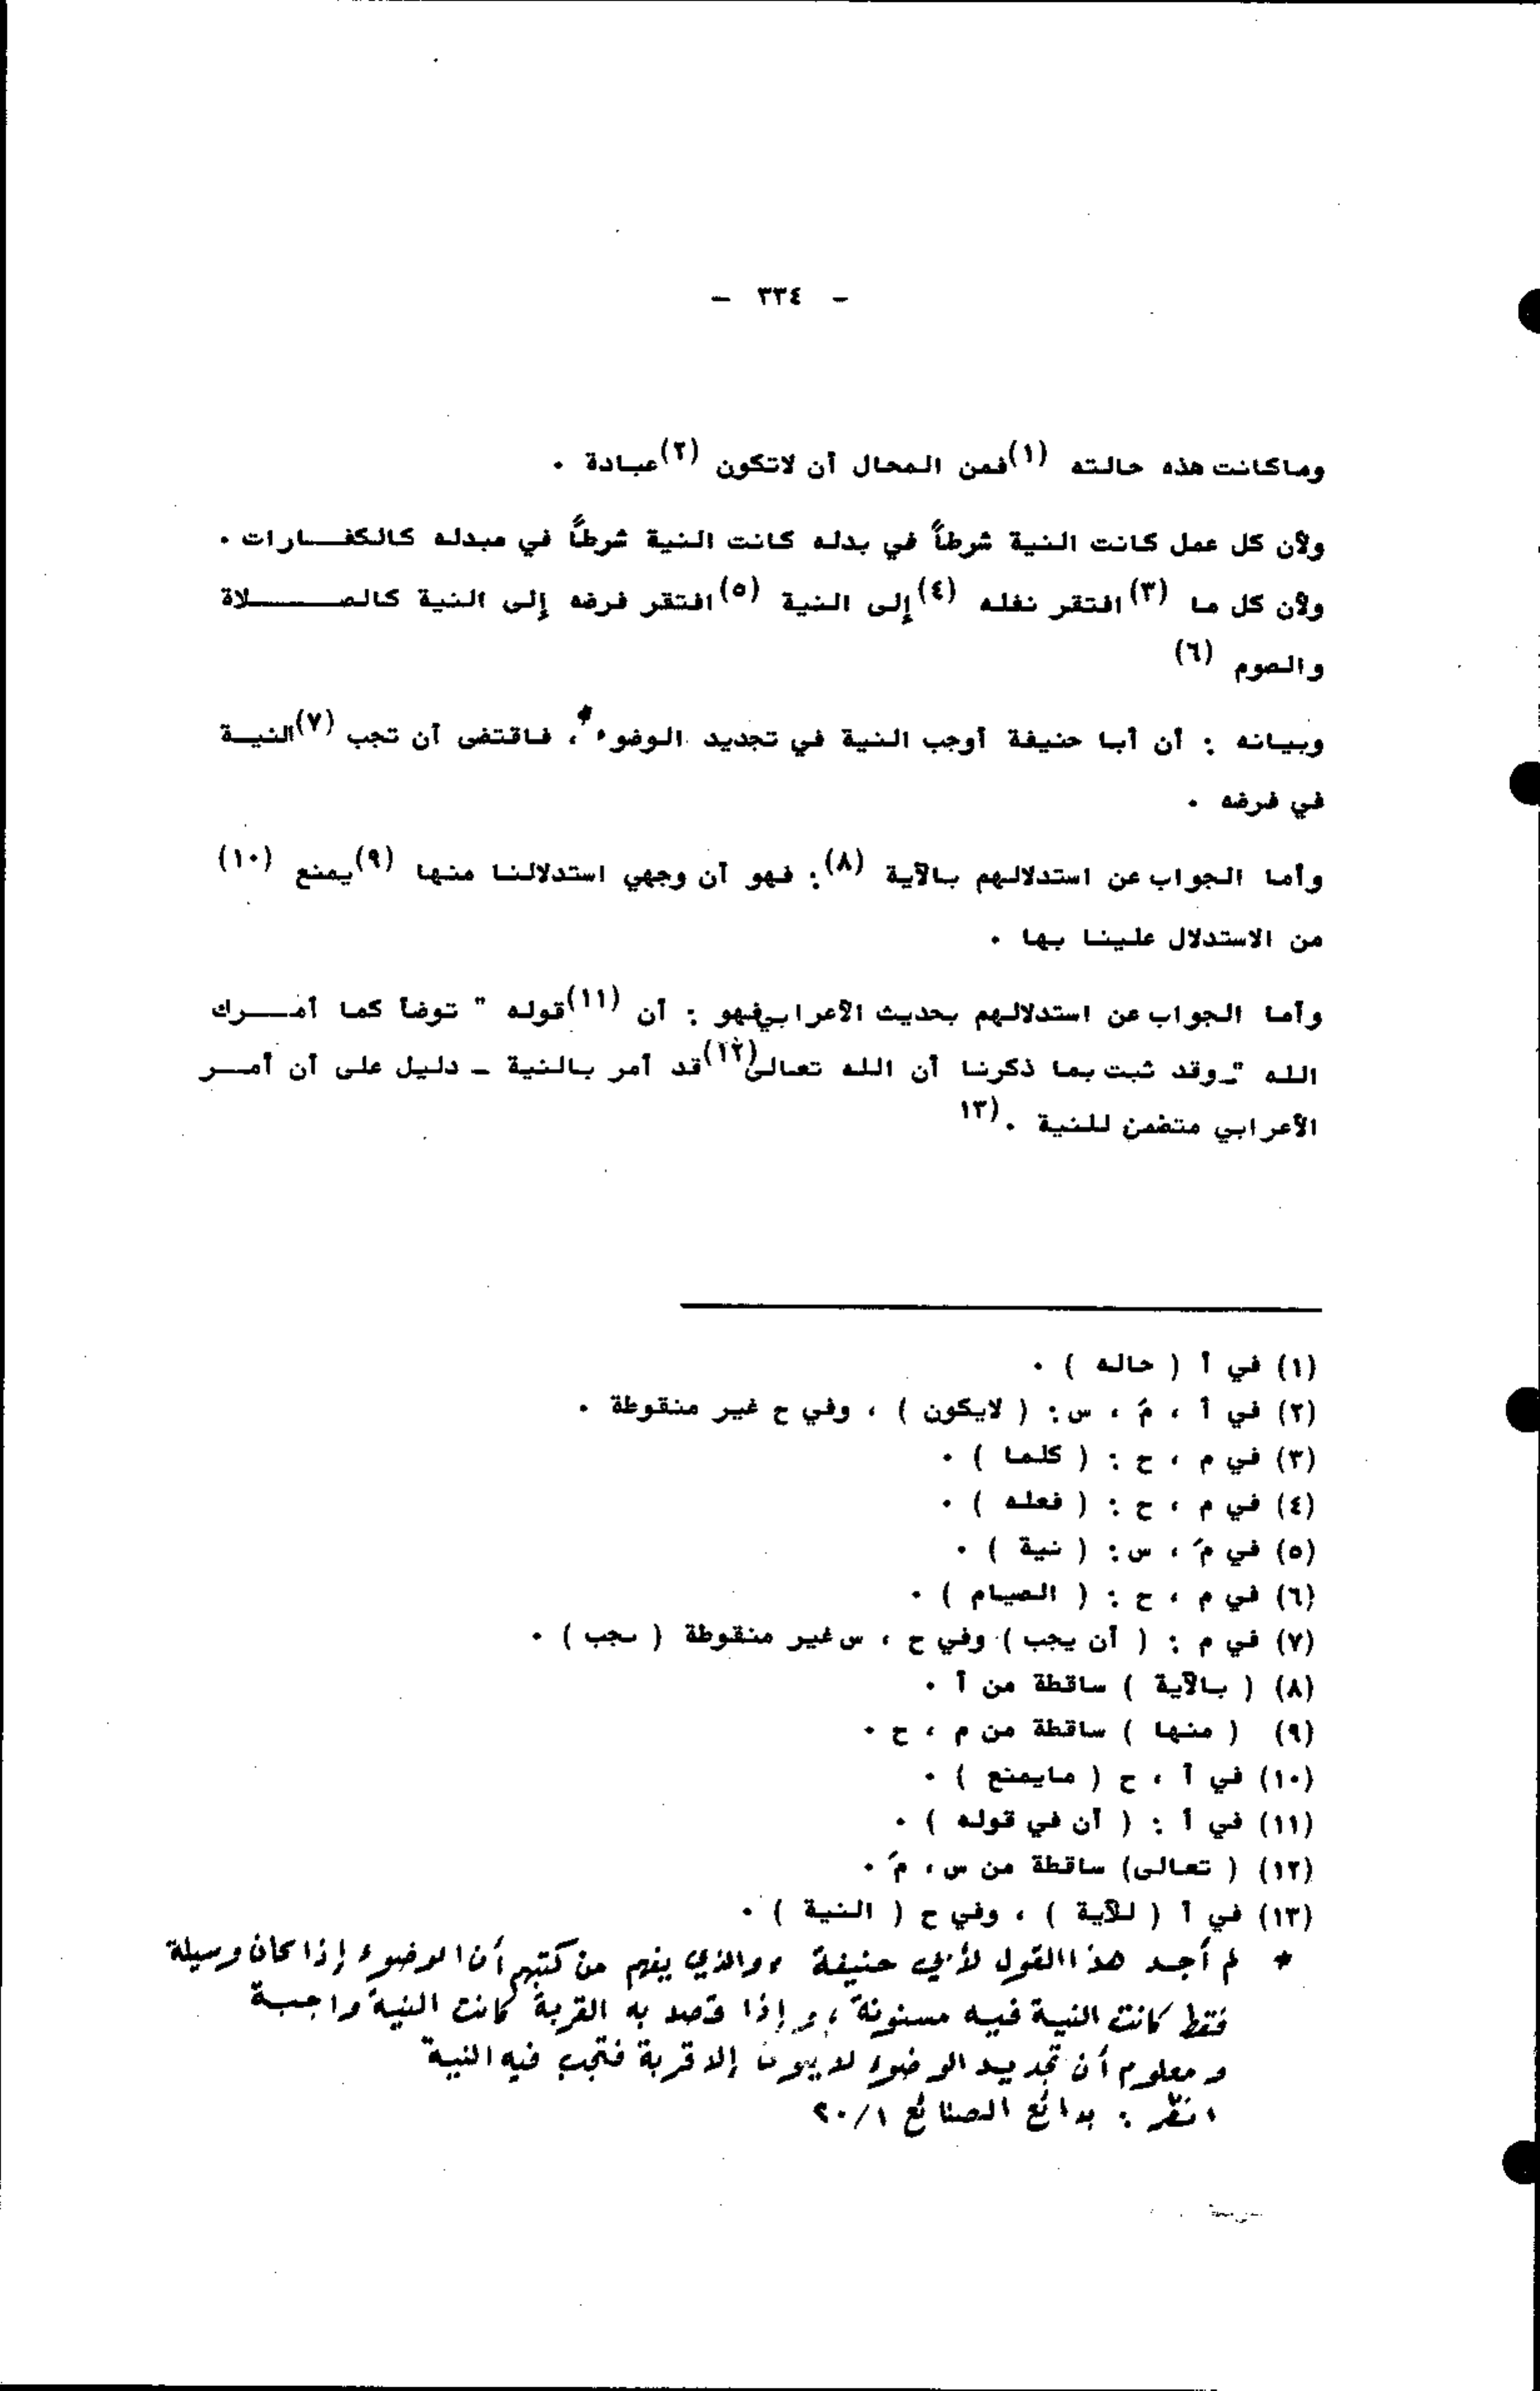 - ٣٣٤ -
وماكانت هذه حالته (١) فمن المحال أن لاتكون (٢) عبادة .
ولأن كل عمل كانت النية شرطاً في بدله كانت النية شرطاً في مبدله كالكفـــارات .
ولأن كل ما (٣) افتقر نفله (٤) إلى النية (٥) افتقر فرضه إلى النية كالصــــــلاة
والصوم (٦)
وبيانه : أن أبا حنيفة أوجب النية في تجديد الوضوء* ، فاقتضى أن تجب (٧) النيــة
في فرضه .
وأما الجواب عن استدلالهم بالآية (٨) : فهو أن وجهي استدلالنا منها (٩) يمنع (١٠)
من الاستدلال علينا بها .
وأما الجواب عن استدلالهم بحديث الأعرابي فهو : أن (١١) قوله " توضأ كما أمـــرك
الله " ـ وقد ثبت بما ذكرنا أن الله تعالى (١٢) قد أمر بالنية ـ دليل على أن أمـــر
الأعرابي متضمن للنية . (١٣
(١) في أ ( حاله ) .
(٢) في أ ، مَ ، س : ( لايكون ) ، وفي ح غير منقوطة .
(٣) في م ، ح : ( كلما ) .
(٤) في م ، ح : ( فعله ) .
(٥) في مَ ، س : ( نية ) .
(٦) في م ، ح : ( الصيام ) .
(٧) في م : ( أن يجب ) وفي ح ، س غير منقوطة ( ىجب ) .
(٨) ( بالآية ) ساقطة من أ .
(٩) ( منها ) ساقطة من م ، ح .
(١٠) في أ ، ح ( مايمنع ) .
(١١) في أ : ( أن في قوله ) .
(١٢) ( تعالى ) ساقطة من س ، مَ .
(١٣) في أ ( للآية ) ، وفي ح ( النية ) .
* لم أجد هذا القول لأبي حنيفة ، والذي يفهم من كتبهم أن الوضوء إذا كان وسيلة
فقط كانت النية فيه مسنونة ، وإذا قصد به القربة كانت النية واجبة
ومعلوم أن تجديد الوضوء لا يكون إلا قربة فتجب فيه النية
انظر : بدائع الصنائع ٢٠/١